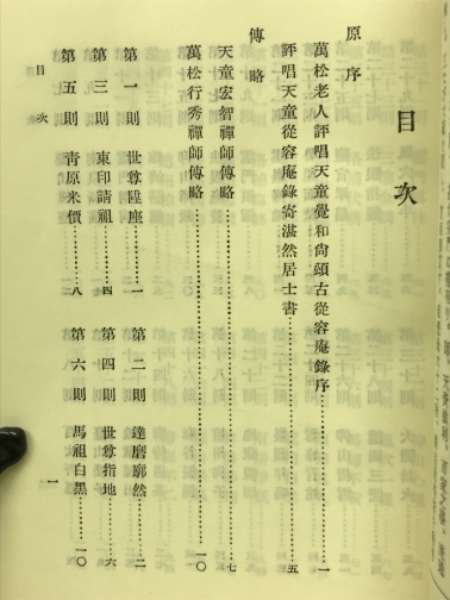 目次
原序
萬松老人評唱天童覺和尙頌古從容庵錄序………一
評唱天童從容庵錄寄湛然居士書………五
傳略
天童宏智禪師傳略………七
萬松行秀禪師傳略………一〇
第一則 世尊陞座………一
第二則 達磨廓然………二
第三則 東印請祖………四
第四則 世尊指地………六
第五則 青原米價………八
第六則 馬祖白黑………一〇
目次
一